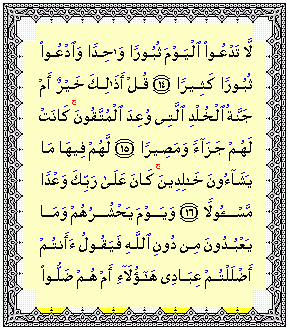 لَّا تَدْعُوا۟ ٱلْيَوْمَ ثُبُورًا وَٰحِدًا وَٱدْعُوا۟
ثُبُورًا كَثِيرًا ١٤ قُلْ أَذَٰلِكَ خَيْرٌ أَمْ
جَنَّةُ ٱلْخُلْدِ ٱلَّتِى وُعِدَ ٱلْمُتَّقُونَ ۚ كَانَتْ
لَهُمْ جَزَآءً وَمَصِيرًا ١٥ لَّهُمْ فِيهَا مَا
يَشَآءُونَ خَـٰلِدِينَ ۚ كَانَ عَلَىٰ رَبِّكَ وَعْدًا
مَّسْـُٔولًا ١٦ وَيَوْمَ يَحْشُرُهُمْ وَمَا
يَعْبُدُونَ مِن دُونِ ٱللَّهِ فَيَقُولُ ءَأَنتُمْ
أَضْلَلْتُمْ عِبَادِى هَـٰٓؤُلَآءِ أَمْ هُمْ ضَلُّوا۟